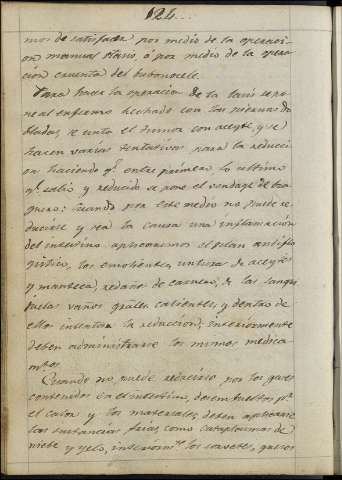 124...
mos de satisfacer por medio de la operaci-
on manual ó taxis, ó por medio de la opera
cion cruenta del bubonocele.
Para hacer la operacion de la taxis se po-
ne al enfermo hechado con las piernas do
bladas, se unta el tumor con aceyte, y se
hacen varias tentativas para la reducci-
on haciendo q.e entre primero lo ultimo
q.e salió y reducido se pone el vendage de bra
guero: Cuando por este medio no puede re-
ducirse y sea la causa una inflamación
del intestino aplicaremos el plan antiflo
gistico, los emolientes, unturas de aceytes
y manteca, redaños de carnero, de las sangui
juelas vaños grāles calientes, y dentro de
ellos intentar la reduccion; interiormente
deben administrarse los mismos medica
m.tos
Cuando no puede reducirse por los gases
contenidos en el intestino, desembueltos p.r
el calor y los materiales, deben aplicarse
las sustancias frias, como cataplasmas de
nieve y yelo, interiorm.te los sorvetes,